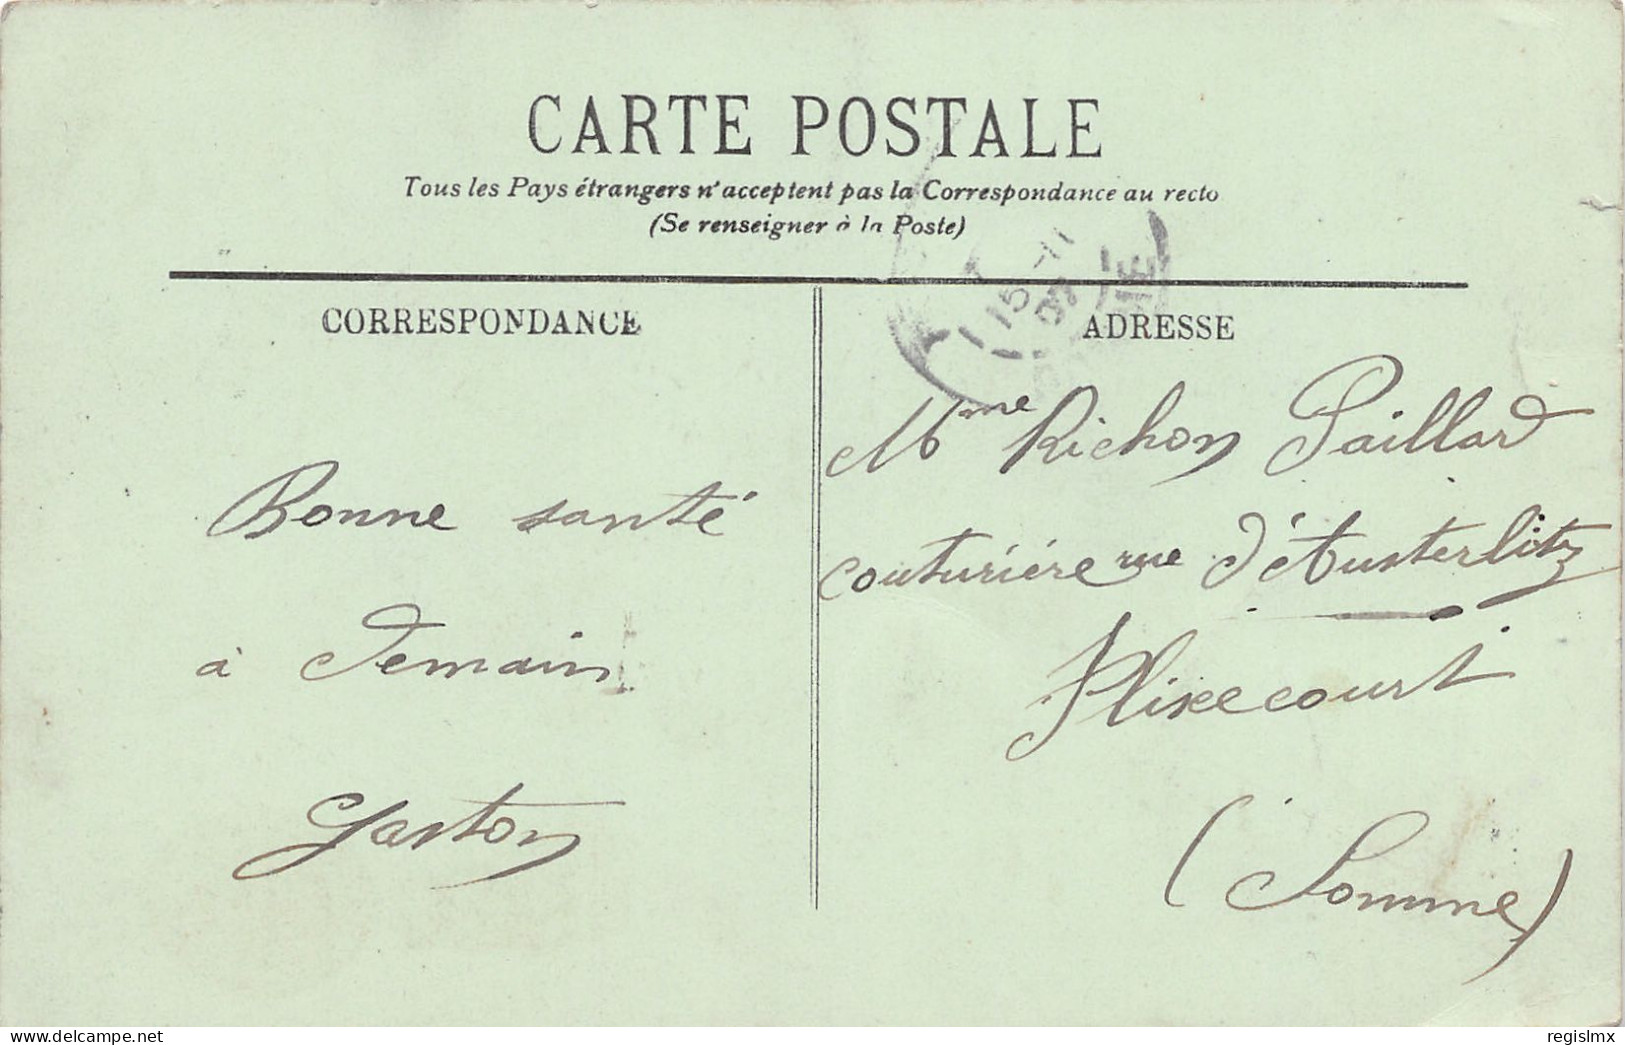 CARTE POSTALE
Tous les Pays étrangers n'acceptent pas la Correspondance au recto
(Se renseigner à la Poste)
CORRESPONDANCE
ADRESSE
15 - 11
07
Bonne santé
à demain
Gaston
Mme Richon Paillard
couturiére rue d'Austerlitz
Flixecourt
(Somme)
www.delcampe.net
regislmx